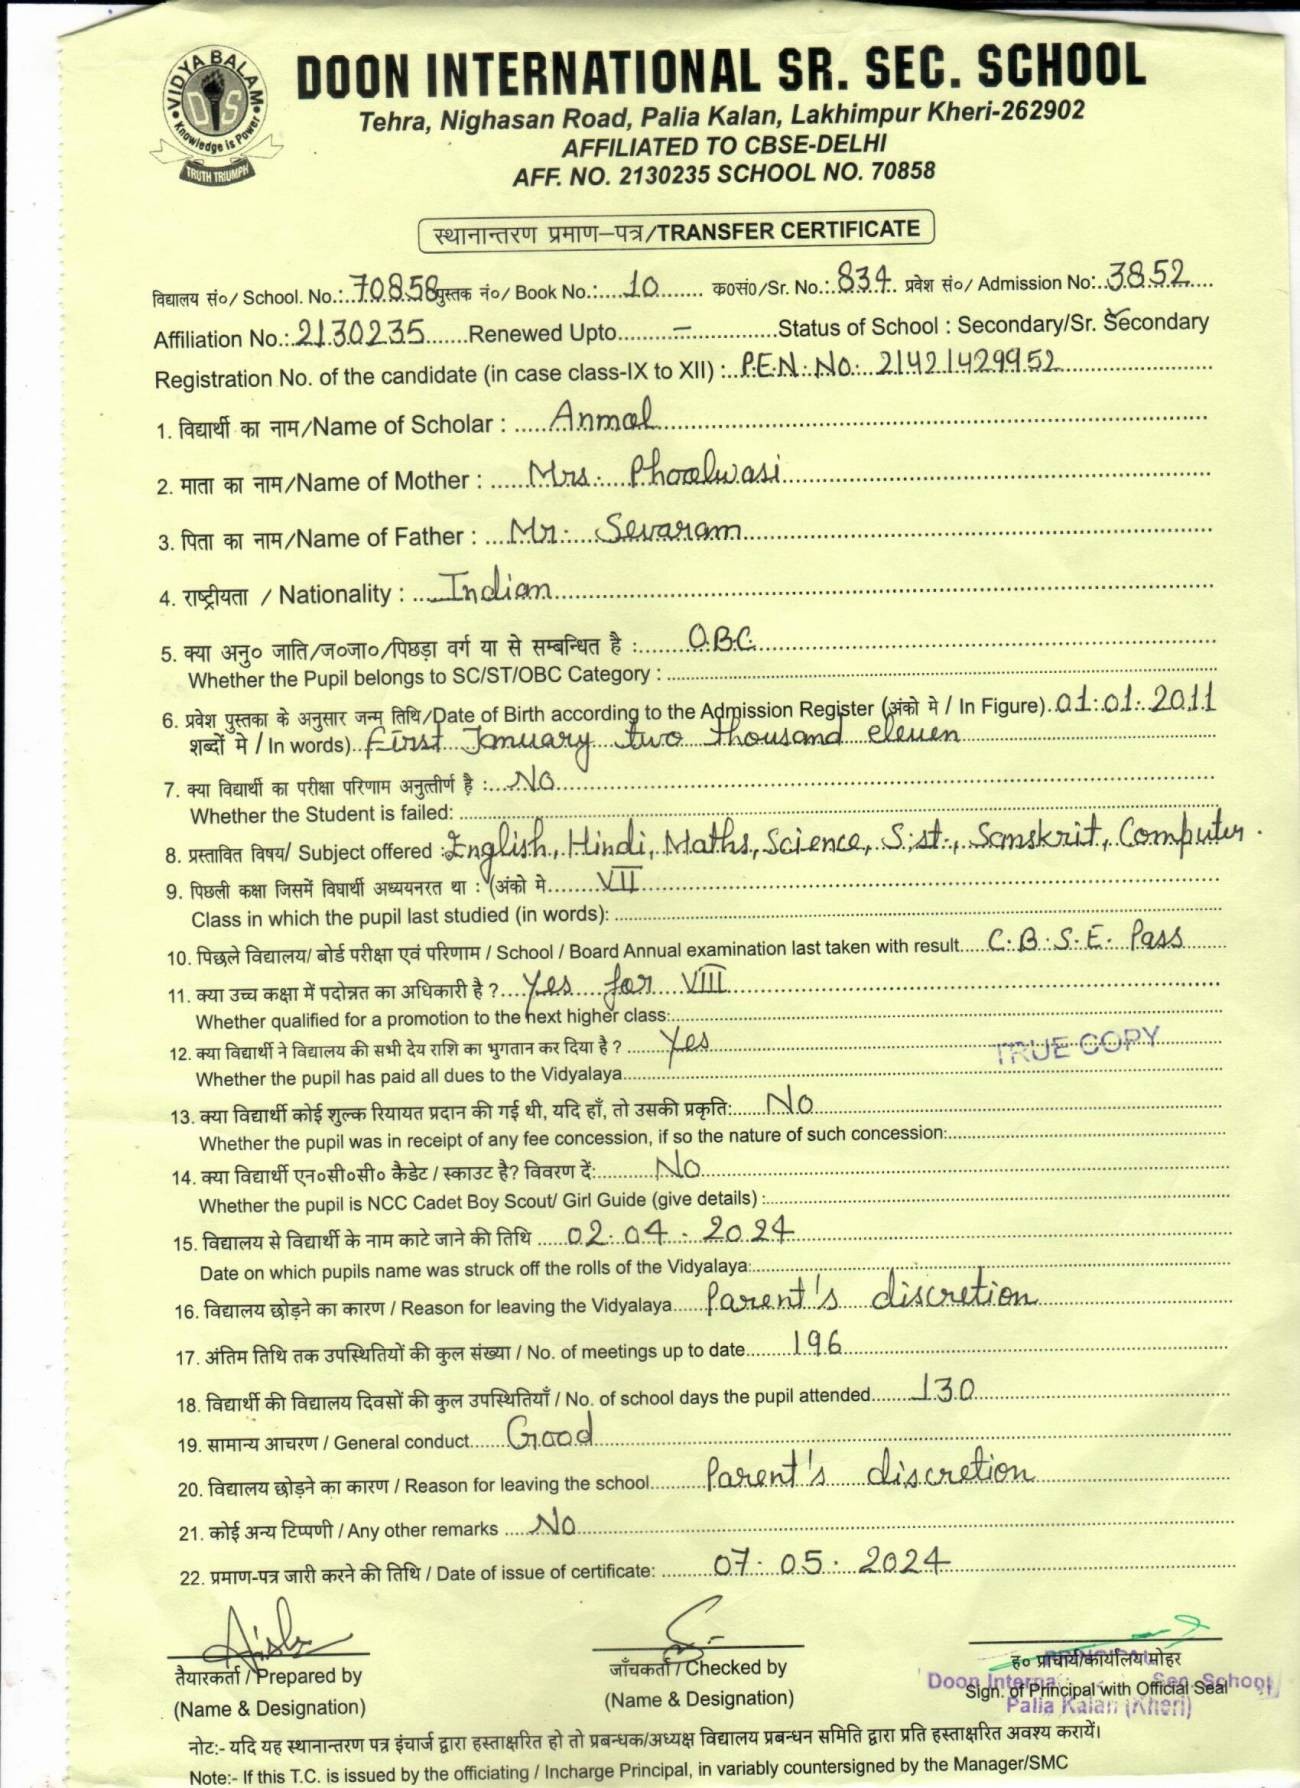 VIDYA BALAM
DIS
Knowledge is Power
TRUTH TRIUMPH
DOON INTERNATIONAL SR. SEC. SCHOOL
Tehra, Nighasan Road, Palia Kalan, Lakhimpur Kheri-262902
AFFILIATED TO CBSE-DELHI
AFF. NO. 2130235 SCHOOL NO. 70858
स्थानान्तरण प्रमाण–पत्र/TRANSFER CERTIFICATE
विद्यालय सं०/ School. No.: 70858 पुस्तक नं०/ Book No.: 10 क०सं०/Sr. No.: 834 प्रवेश सं०/ Admission No: 3852
Affiliation No.: 2130235 Renewed Upto – Status of School : Secondary/Sr. Secondary
Registration No. of the candidate (in case class-IX to XII) : P.E.N. No. 21421429952
1. विद्यार्थी का नाम/Name of Scholar : Anmol
2. माता का नाम/Name of Mother : Mrs. Phoolwasi
3. पिता का नाम/Name of Father : Mr. Sevaram
4. राष्ट्रीयता / Nationality : Indian
5. क्या अनु० जाति/ज०जा०/पिछड़ा वर्ग या से सम्बन्धित है : O.B.C.
Whether the Pupil belongs to SC/ST/OBC Category :
6. प्रवेश पुस्तका के अनुसार जन्म तिथि/Date of Birth according to the Admission Register (अंको मे / In Figure) 01.01.2011
शब्दों मे / In words) First January two thousand eleven
7. क्या विद्यार्थी का परीक्षा परिणाम अनुत्तीर्ण है : No
Whether the Student is failed:
8. प्रस्तावित विषय/ Subject offered : English, Hindi, Maths, Science, S.st., Sanskrit, Computer.
9. पिछली कक्षा जिसमें विघार्थी अध्ययनरत था : (अंको मे VII
Class in which the pupil last studied (in words):
10. पिछले विद्यालय/ बोर्ड परीक्षा एवं परिणाम / School / Board Annual examination last taken with result C.B.S.E. Pass
11. क्या उच्च कक्षा में पदोन्नत का अधिकारी है ? Yes for VIII
Whether qualified for a promotion to the next higher class:
12. क्या विद्यार्थी ने विद्यालय की सभी देय राशि का भुगतान कर दिया है ? Yes
TRUE COPY
Whether the pupil has paid all dues to the Vidyalaya
13. क्या विद्यार्थी कोई शुल्क रियायत प्रदान की गई थी, यदि हाँ, तो उसकी प्रकृति: No
Whether the pupil was in receipt of any fee concession, if so the nature of such concession:
14. क्या विद्यार्थी एन०सी०सी० कैडेट / स्काउट है? विवरण दें: No
Whether the pupil is NCC Cadet Boy Scout/ Girl Guide (give details) :
15. विद्यालय से विद्यार्थी के नाम काटे जाने की तिथि 02.04.2024
Date on which pupils name was struck off the rolls of the Vidyalaya:
16. विद्यालय छोड़ने का कारण / Reason for leaving the Vidyalaya Parent's discretion
17. अंतिम तिथि तक उपस्थितियों की कुल संख्या / No. of meetings up to date 196
18. विद्यार्थी की विद्यालय दिवसों की कुल उपस्थितियाँ / No. of school days the pupil attended 130
19. सामान्य आचरण / General conduct Good
20. विद्यालय छोड़ने का कारण / Reason for leaving the school Parent's discretion
21. कोई अन्य टिप्पणी / Any other remarks No
22. प्रमाण-पत्र जारी करने की तिथि / Date of issue of certificate: 07.05.2024
तैयारकर्ता / Prepared by
(Name & Designation)
जाँचकर्ता / Checked by
(Name & Designation)
ह० प्राचार्य/कार्यालय मोहर
Sign. of Principal with Official Seal
PRINCIPAL
Doon Interna Sec. School
Palia Kalan (Kheri)
नोट:- यदि यह स्थानान्तरण पत्र इंचार्ज द्वारा हस्ताक्षरित हो तो प्रबन्धक/अध्यक्ष विद्यालय प्रबन्धन समिति द्वारा प्रति हस्ताक्षरित अवश्य करायें।
Note:- If this T.C. is issued by the officiating / Incharge Principal, in variably countersigned by the Manager/SMC